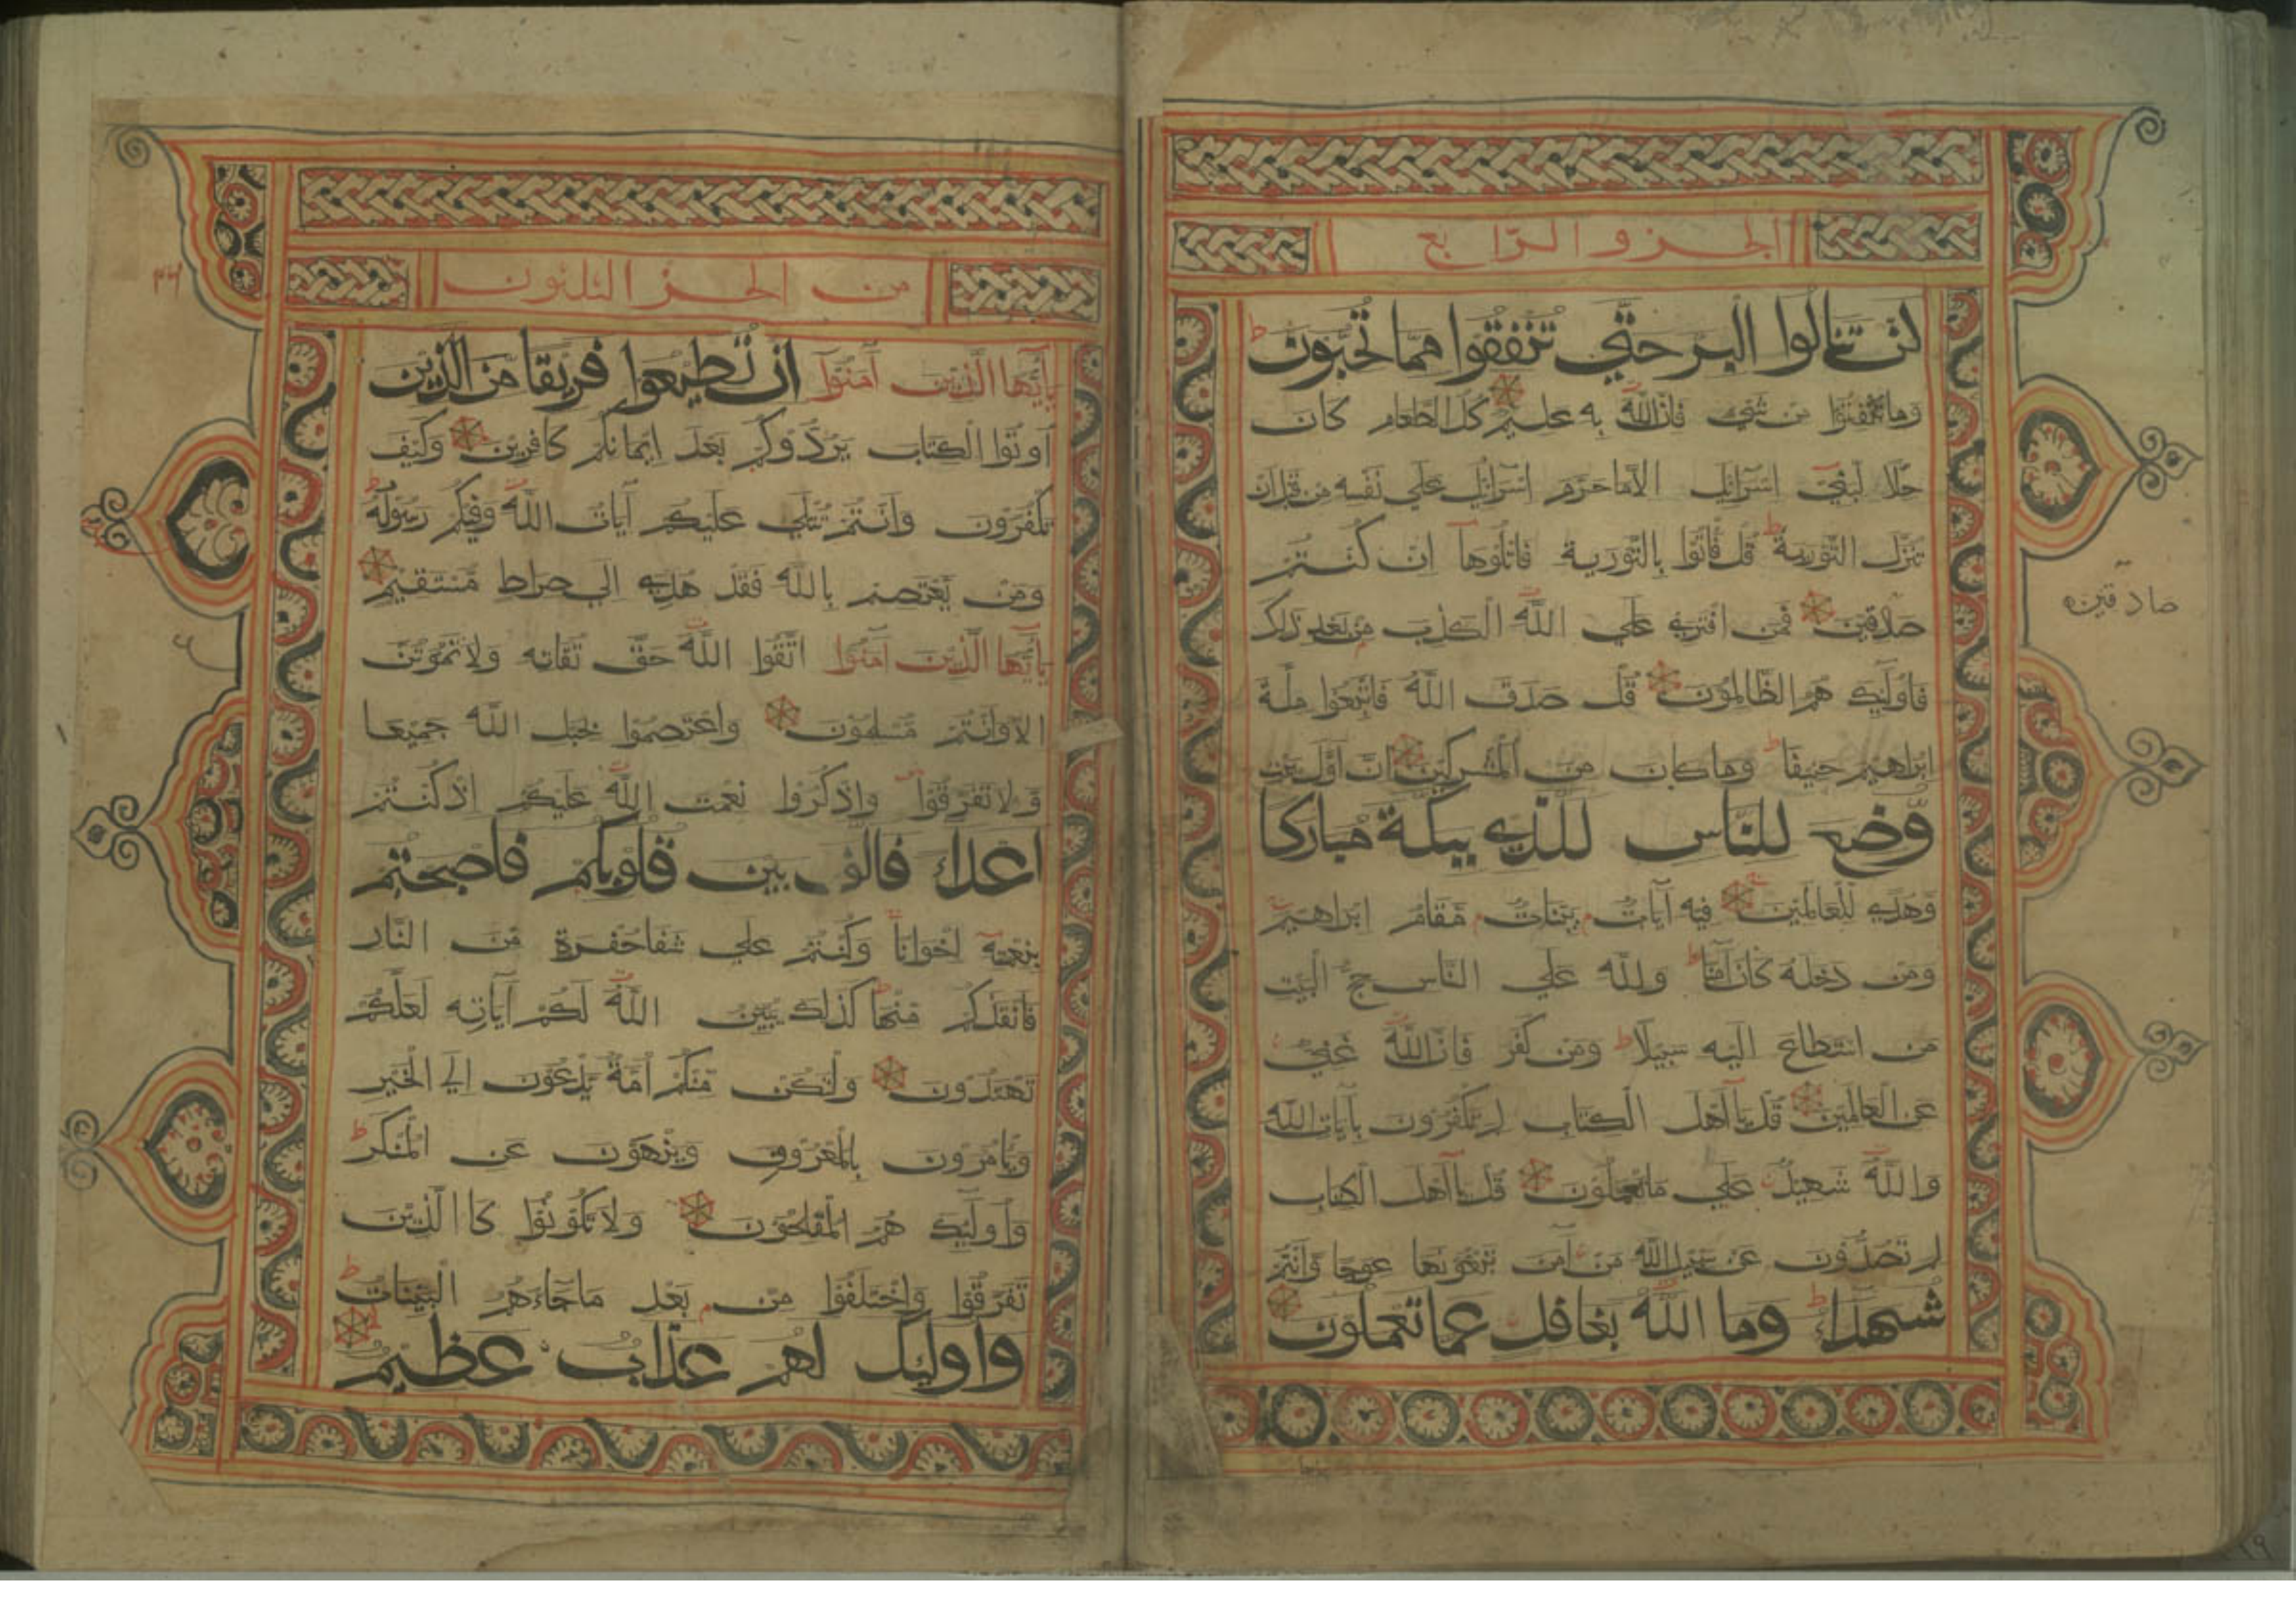 الجزو الرّابع
لن تنالوا البر حتّي تنفقوا ممّا تحبّون ط
وما تنفقوا من شيء فانّ الله به عليم كل الطعام كان
حلّا لبني اسرائيل الّا ما حرّم اسرائيل علي نفسه من قبل ان
تنزّل التّورية ط قل فأتوا بالتّورية فاتلوها ان كنتم
صادقين فمن افتري علي الله الكذب من بعد ذلك
صادقين
فاوليك هم الظّالمون قل صدق الله فاتّبعوا ملّة
ابراهيم حنيفا ط وما كان من المشركين انّ اوّل بيت
وّضع للنّاس للّذي ببكّة مباركا
وّهدي للعالمين فيه آيات بيّنات مّقام ابراهيم
ومن دخله كان آمنا ط ولله علي النّاس حجّ البيت
من استطاع اليه سبيلا ط ومن كفر فانّ الله غنيّ
عن العالمين قل يآ اهل الكتاب لم تكفرون بآيات الله
والله شهيد علي ما تعملون قل يآ اهل الكتاب
لم تصدّون عن سبيل الله من آمن تبغونها عوجا وّانتم
شهداء ط وما الله بغافل عما تعملون
من الجز الثلثون
يآيّها الّذين آمنوآ ان تطيعوا فريقا من الّذين
اوتوا الكتاب يردّوكم بعد ايمانكم كافرين وكيف
تكفرون وانتم تتلي عليكم آيات الله وفيكم رسوله ط
ومن يعتصم بالله فقد هدي الي صراط مّستقيم
يآيّها الّذين آمنوا اتّقوا الله حقّ تقاته ولا تموتنّ
الّا وانتم مّسلمون واعتصموا بحبل الله جميعا
وّلا تفرّقوا واذكروا نعمت الله عليكم اذ كنتم
اعداء فالّف بين قلوبكم فاصبحتم
بنعمته اخوانا وكنتم علي شفا حفرة مّن النّار
فانقذكم مّنها كذلك يبيّن الله لكم آياته لعلّكم
تهتدون ولتكن مّنكم امّة يّدعون الي الخير
ويأمرون بالمعروف وينهون عن المنكر ط
واوليك هم المفلحون ولا تكونوا كاالّذين
تفرّقوا واختلفوا من بعد ما جآءهم البيّنات ط
واوليك لهم عذاب عظيم